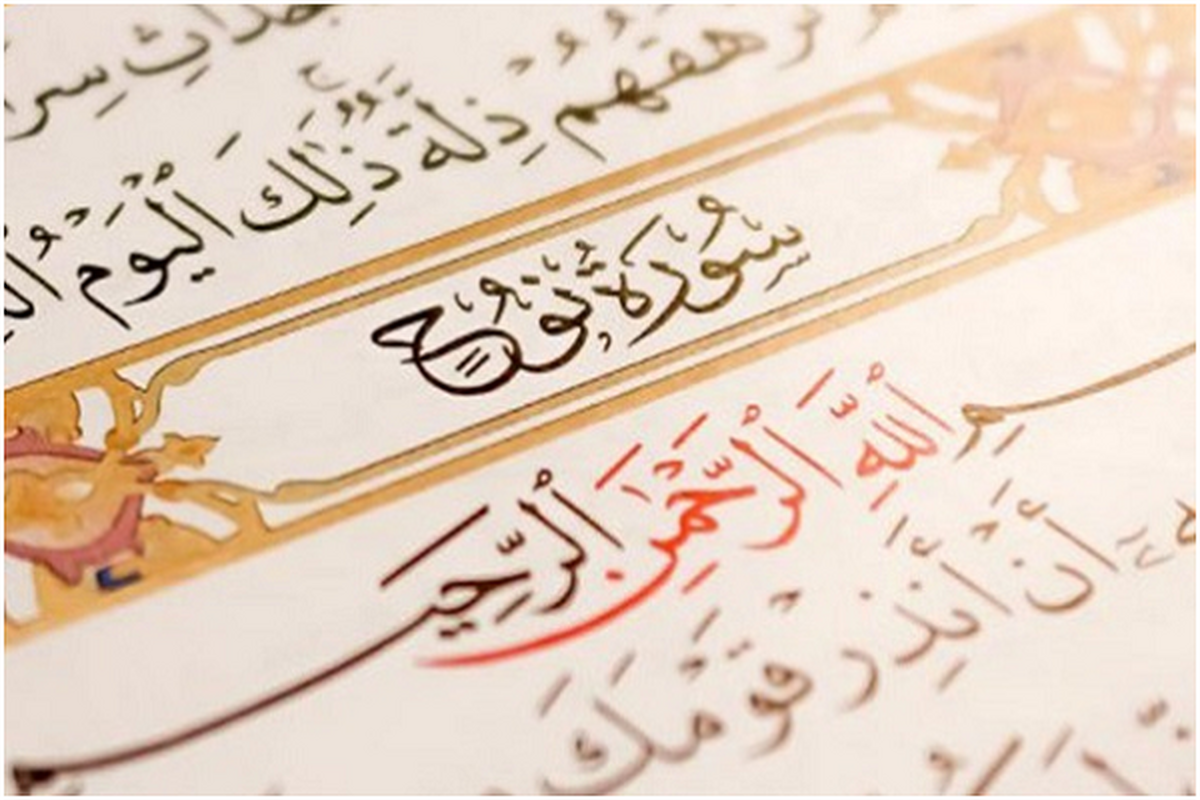 جْدَاثِ سِرَا
هَقُهُمْ ذِلَّةٌ ذَٰلِكَ ٱلْيَوْمُ
سُورَةُ نُوحٍ
بِسْمِ ٱللَّهِ ٱلرَّحْمَٰنِ ٱلرَّحِيمِ
أَنْ أَنذِرْ قَوْمَكَ